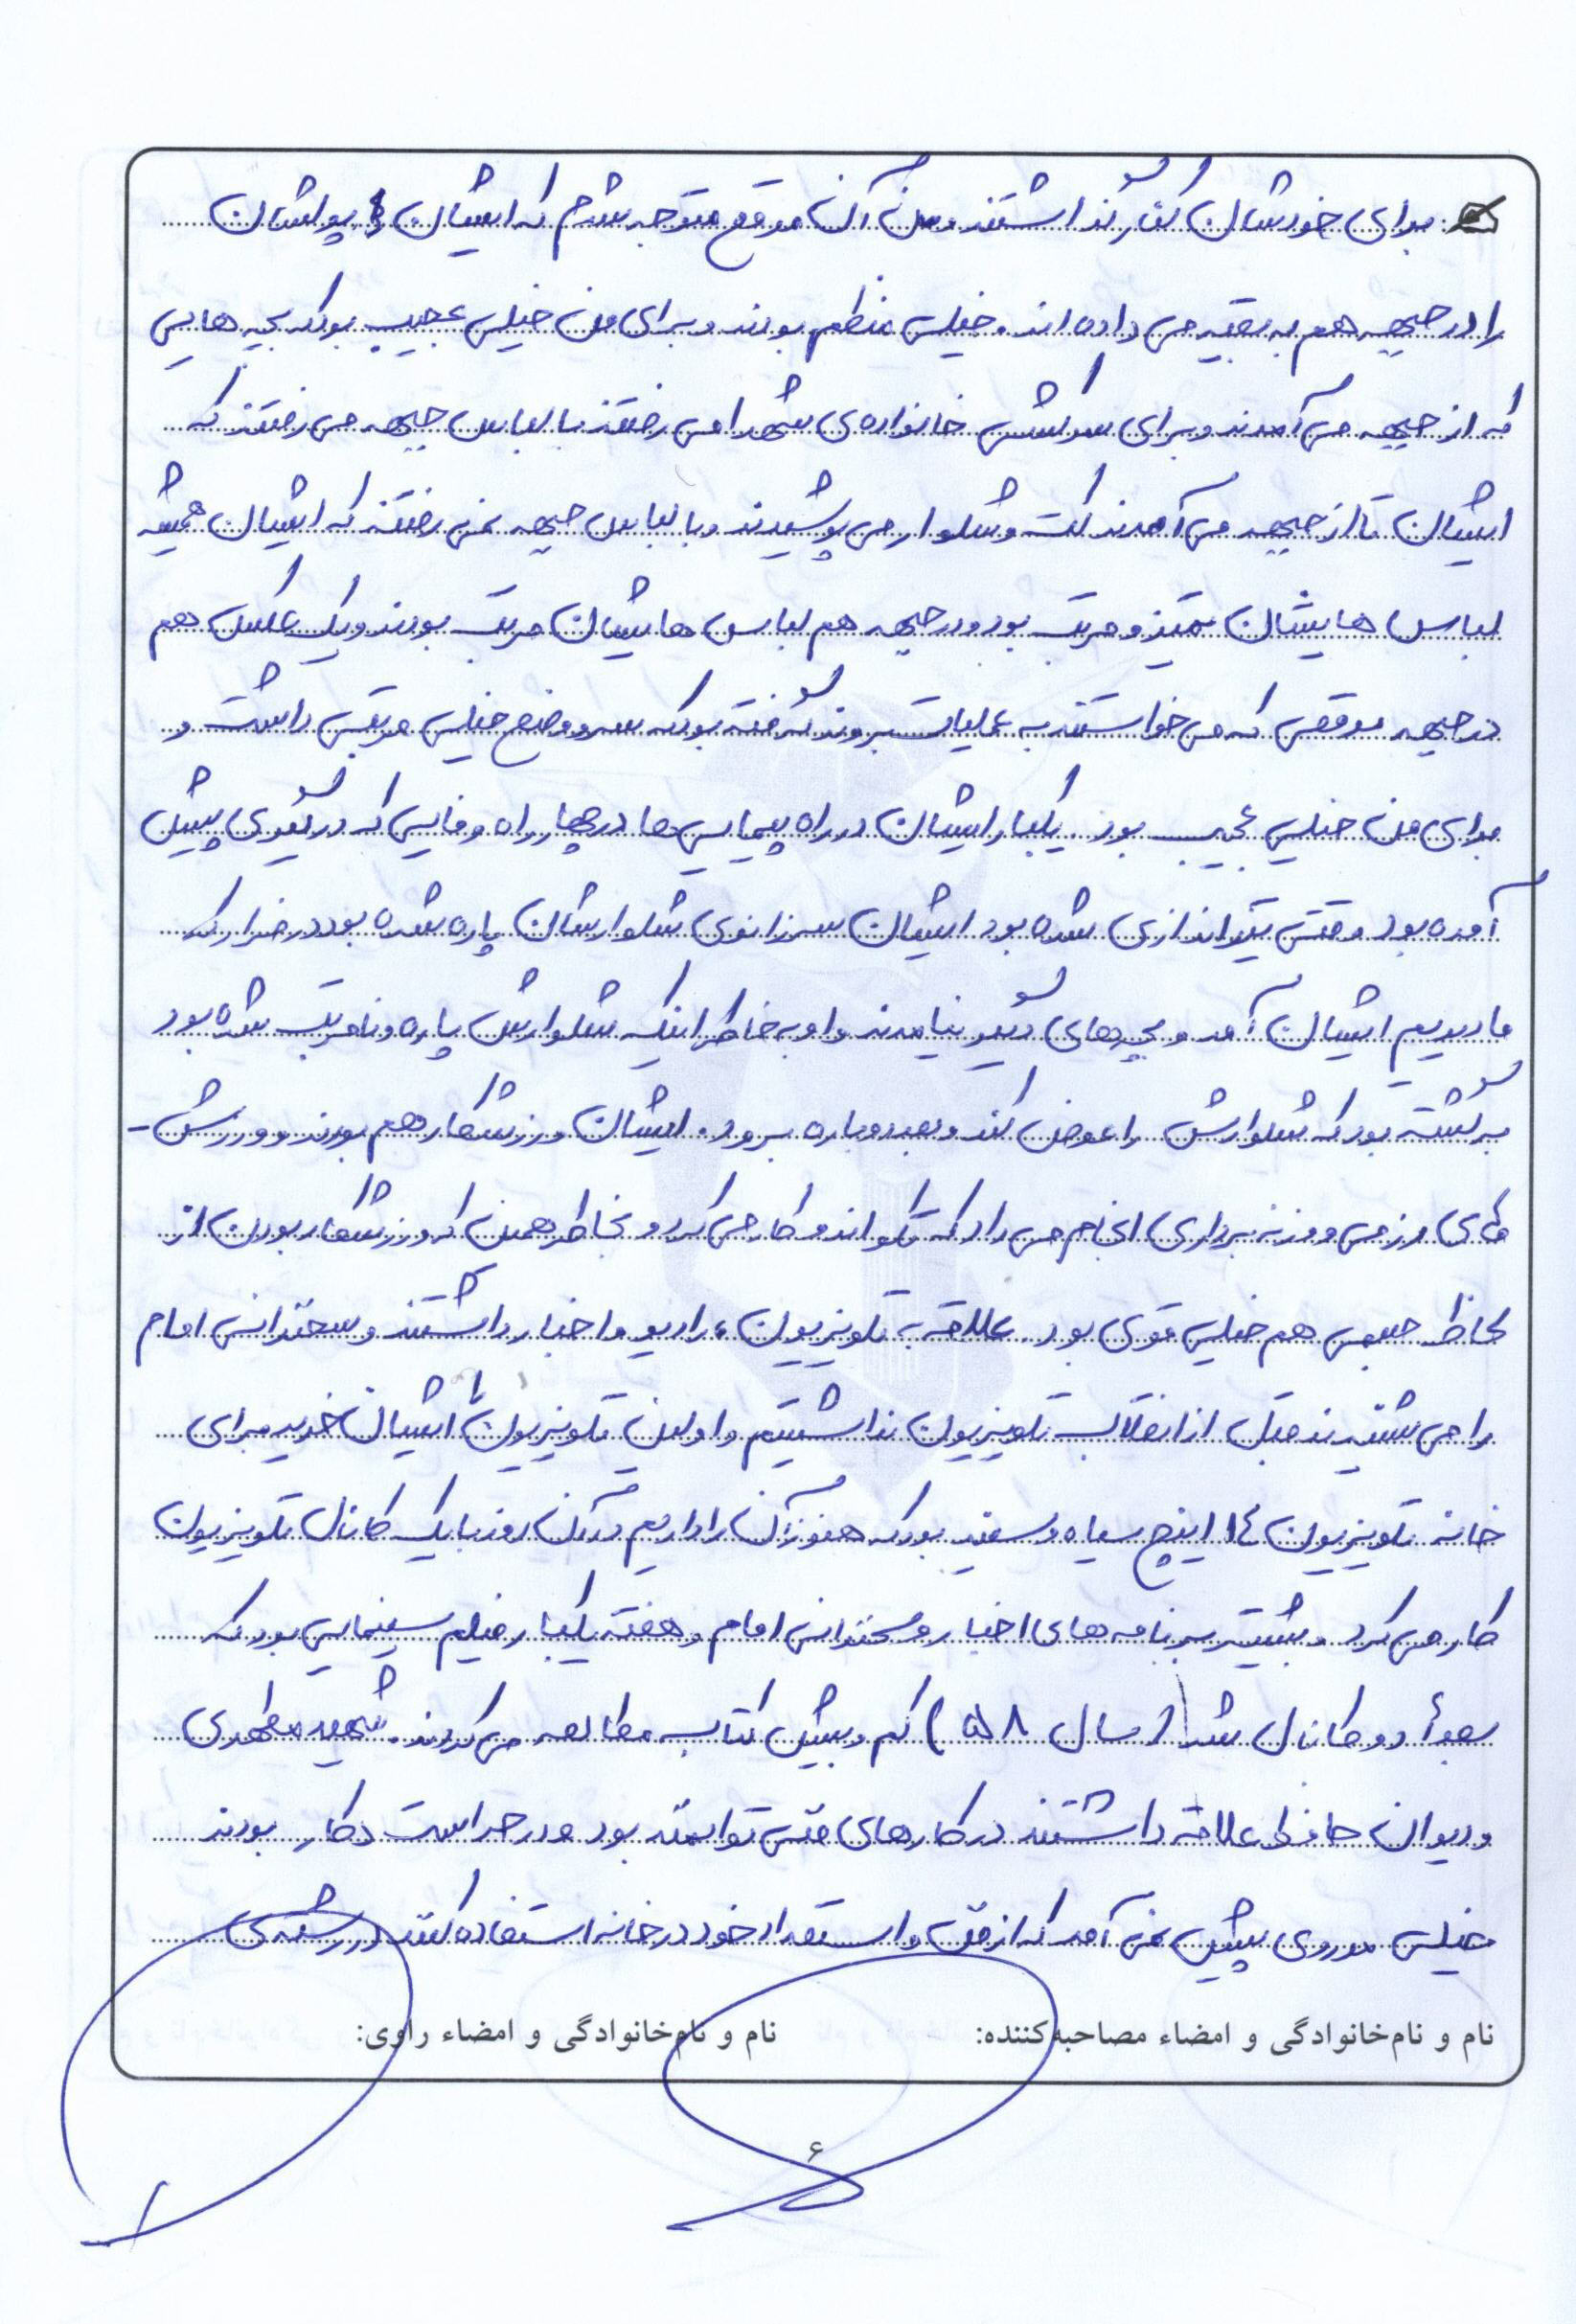 برای خودشان کنار نداشتند و من آن موقع متوجه شدم که ایشان پولشان
را در جبهه هم به بقیه می داده اند. خیلی منظم بودند و برای من خیلی عجیب بود که بچه هایی
که از جبهه می آمدند و برای سرکشی خانواده ی شهدا می رفتند با لباس جبهه می رفتند که
ایشان تا از جبهه می آمدند کت و شلوار می پوشیدند و با لباس جبهه نمی رفتند که ایشان همیشه
لباس هایشان تمیز و مرتب بود و در جبهه هم لباس هایشان مرتب بودند و یک عکس هم
در جبهه موقعی که می خواستند به عملیات بروند گرفته بود که سر و وضع خیلی مرتبی داشت و
برای من خیلی عجیب بود. یکبار ایشان در راه پیمایی ها در چهارراه وفایی که درگیری پیش
آمده بود وقتی تیراندازی شده بود ایشان سر زانوی شلوارشان پاره شده بود در فرار که
ما دیدیم ایشان آمد و بچه های دیگر نیامدند و او به خاطر اینکه شلوارش پاره و نامرتب شده بود
برگشته بود که شلوارش را عوض کند و بعد دوباره برود. ایشان ورزشکار هم بودند و ورزش-
های رزمی و وزنه برداری انجام می داد که تکواندو کار می کرد و بخاطر همین که ورزشکار بودن از
لحاظ جسمی هم خیلی قوی بود. علاقه به تلویزیون، رادیو و اخبار داشتند و سخنرانی امام
را می شنیدند قبل از انقلاب تلویزیون نداشتیم و اولین تلویزیون را ایشان خرید برای
خانه تلویزیون ۱۴ اینچ سیاه و سفید بود که هنوز آن را داریم در آن روز با یک کانال تلویزیون
کار می کرد و بیشتر برنامه های اخبار و سخنرانی امام و هفته یکبار فیلم سینمایی بود که
بعداً دو کانال شد (سال ۵۸) کم و بیش کتاب مطالعه می کردند. شهید مطهری
و دیوان حافظ علاقه داشتند در کارهای فنی توانمند بود و در حراست دکار بودند
خیلی موردی پیش نمی آمد که از فن و استعداد خود در خانه استفاده کنند در رشته ی
نام و نام‌خانوادگی و امضاء مصاحبه‌کننده: نام و نام‌خانوادگی و امضاء راوی:
۶